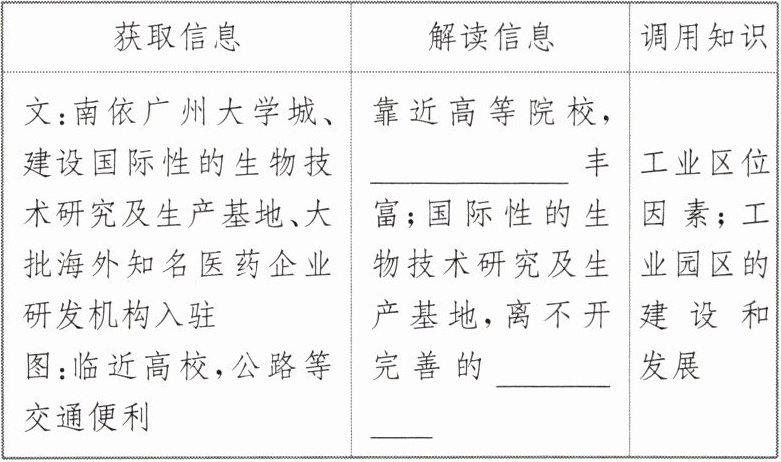 获取信息
解读信息
调用知识
文:南依广州大学城、
建设国际性的生物技
术研究及生产基地、大
批海外知名医药企业
研发机构入驻
图:临近高校,公路等
交通便利
靠近高等院校,
______________ 丰
富;国际性的生
物技术研究及生
产基地,离不开
完善的 ________
____
工业区位
因素;工
业园区的
建设和
发展